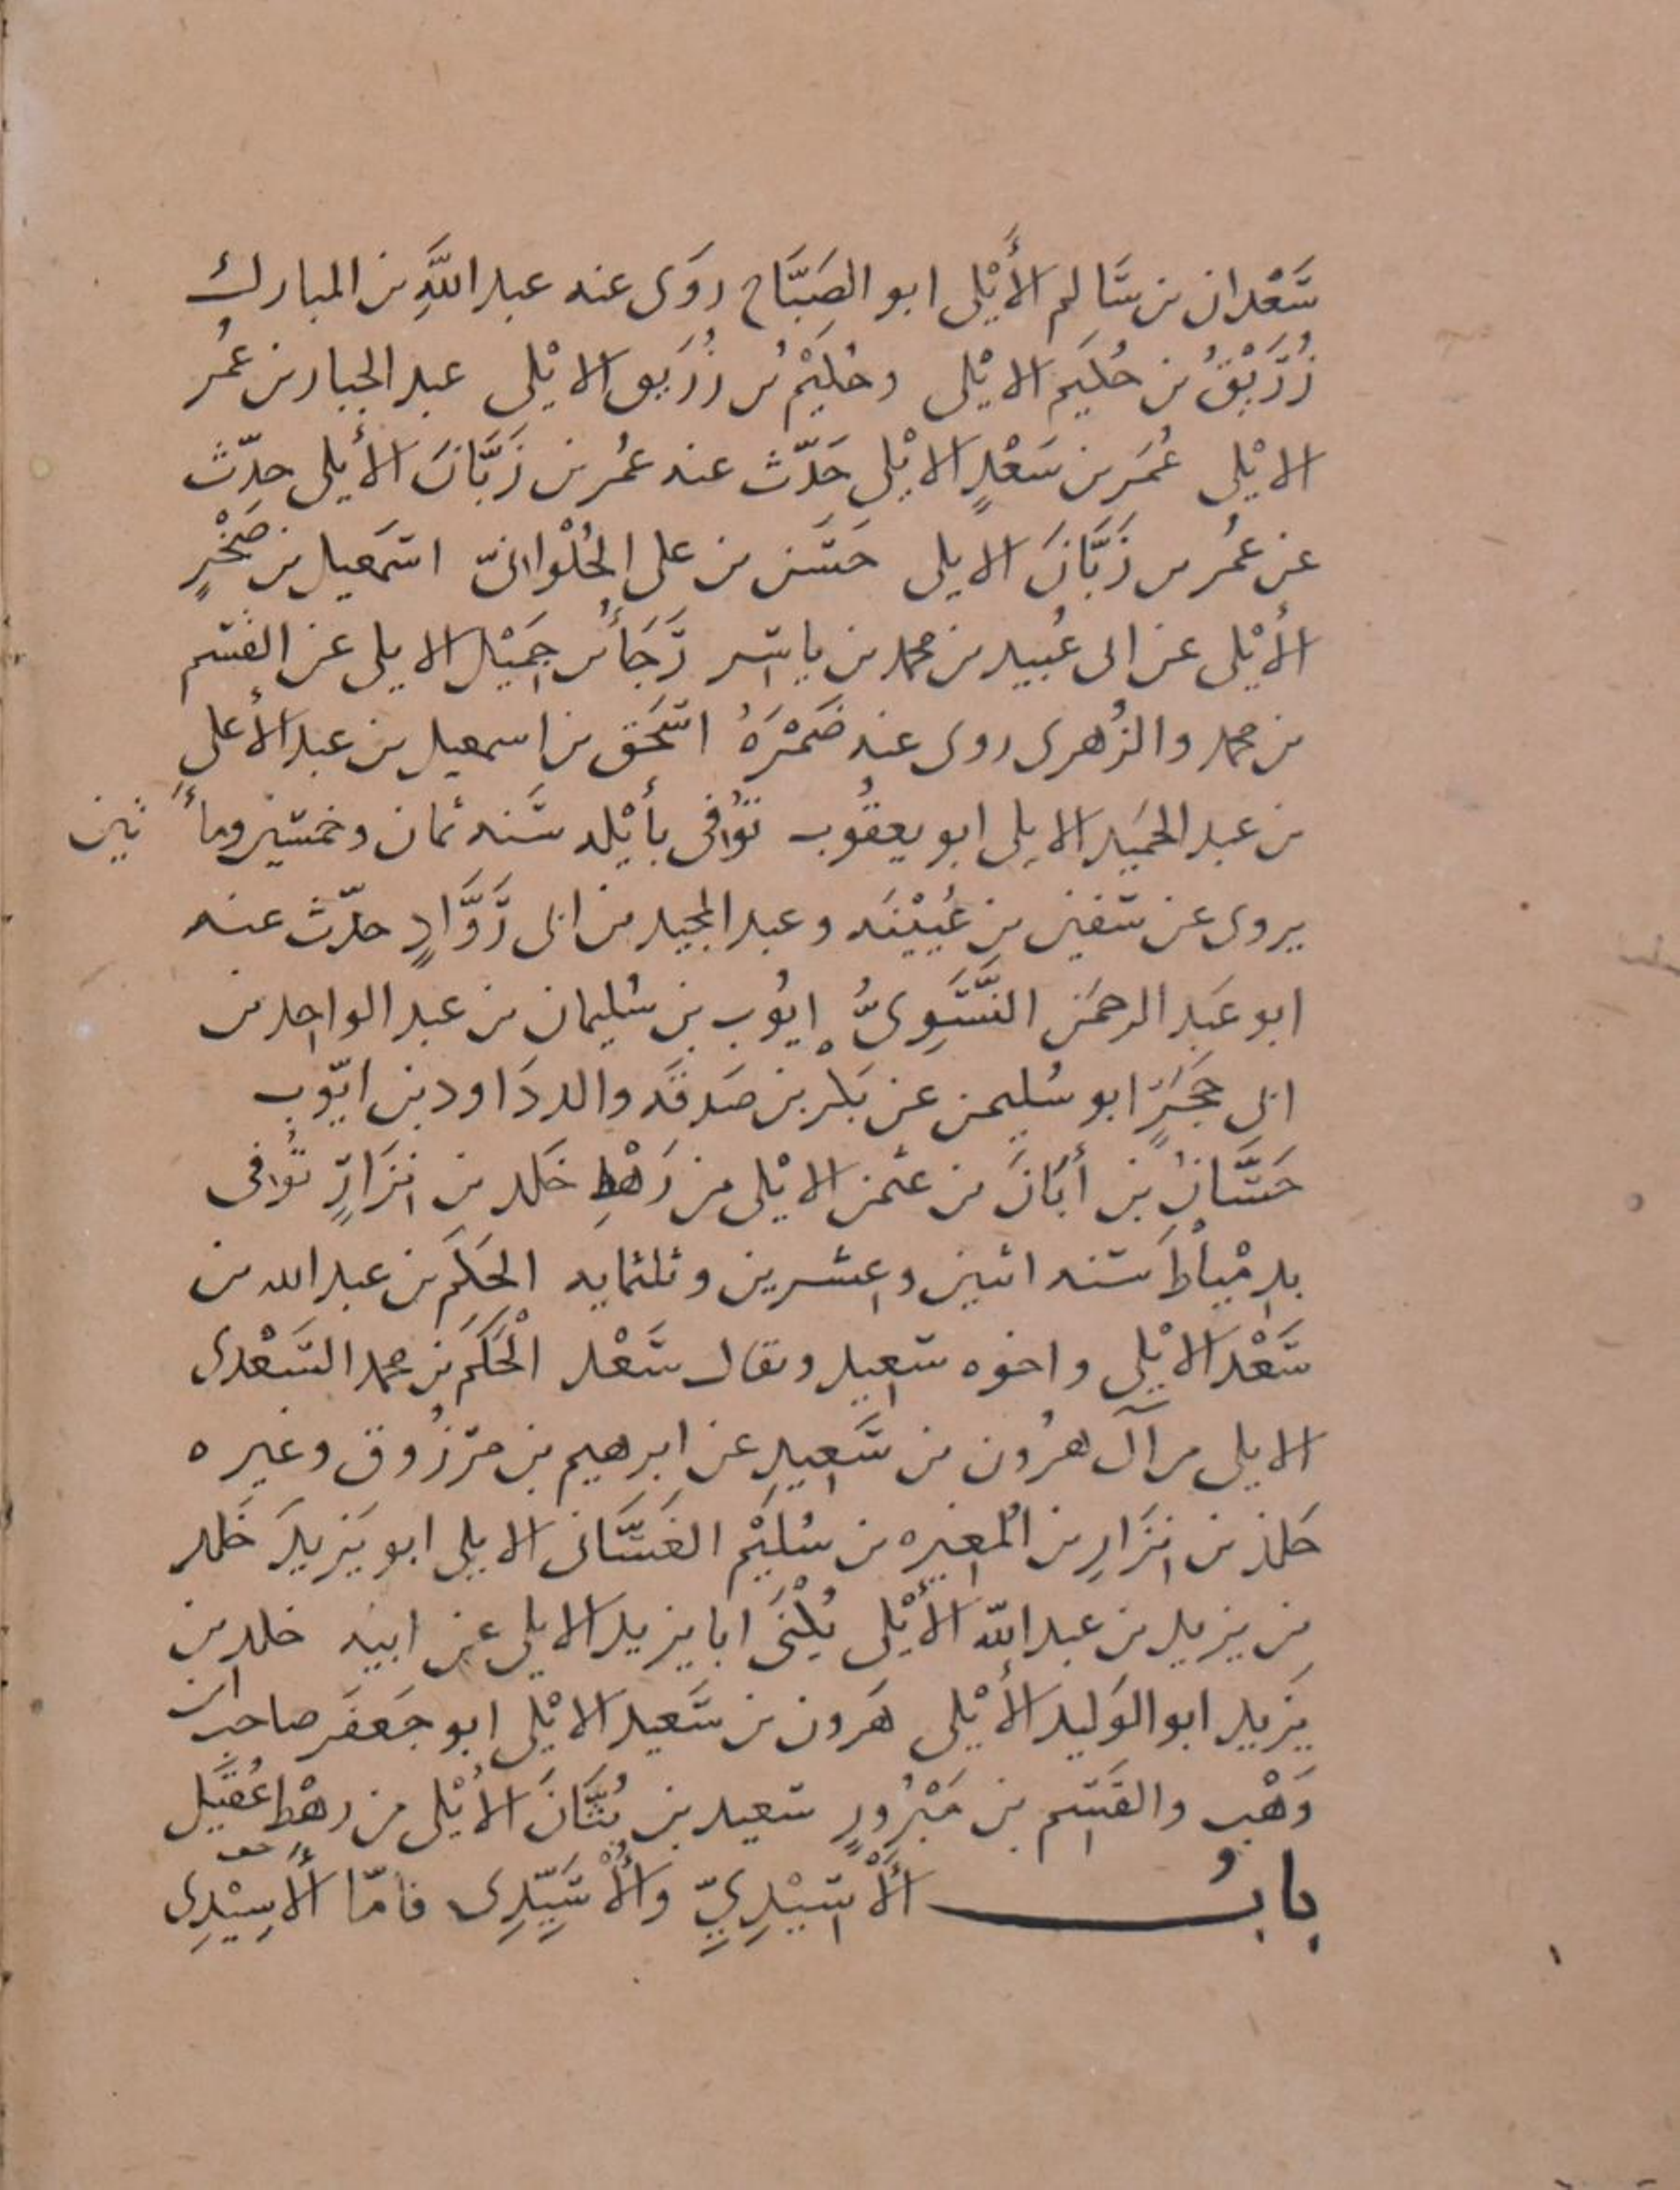 سَعْدان بن سَالم الأَيْلى ابو الصَبَّاح روَى عنه عبد اللَّهِ بن المبارك
زُرَيْقُ بن حُكَيم الايْلى وحُكَيْمُ بن زُرَيق الايْلى عبد الجبار بن عمُر
الايْلى عُمَر بن سَعْدٍ الايْلى حَدّث عنه عمُر بن زَبَّانَ الأيلى حدّث
عن عمُر بن زَبَّانَ الايلى حَسَن بن على الحُلْوانىّ اسمَعيل بن صَخْرٍ
الأيْلى عن ابى عُبيد بن محمد بن ياسر رَجَأ بن جَمِيْل الايلى عن القسم
بن محمد والزُهرى روى عنه ضَمْرَةُ اسْحَق بن اسمعيل بن عبد الأعلى
بن عبد الحمَيِد الايلى ابو يعقُوب تُوفى بأيْله سَنه ثمان وخمسين ومأتين
يروى عن سفين بن عُيَيْنَه وعبد المجيد بن ابى رَوَّادٍ حدّث عنه
ابو عَبد الرحمَن النَّسَوِىُّ ايُوب بن سُليمان بن عبد الواحِد بن
ابى حَجَرٍ ابو سُليمن عن بَكر بن صَدقَه والد دَاود بن ايّوب
حَسَّانُ بن أبَانَ بن عثمن الايْلى من رَهْطِ خَلد بن نِزَارٍ تُوفى
بدِمْيَاطَ سَنه اثنين وعِشرين وثلثمايه الحَكَم بن عبد الله بن
سَعْد الايْلى واخوه سَعِيد ويقال سَعْد الْحَكَم بن محمد السَعْدى
الايلى من آل هرُون بن سَعِيدٍ عن ابرهيم بن مَرْزُوق وغيره
خلد بن نِزَارِ بن المُغِيره بن سُلَيْم الغَسَّانى الايلى ابو يَزيدَ خَلد
بن يزيد بن عبد اللّه الأَيْلى يُكْنَى ابا يزيد الايلى عن ابيه خلد بن
يَزِيد ابو الوَليد الأيْلى هَرون بن سَعيد الايْلى ابو جَعفَر صاحب ابن
وَهْب والقَسِم بن مَبْرُورٍ سَعيد بن بُنَّانَ الأيْلى من رهْط عُقَيل
بابُ الأُسَيْدِيِّ والأُسَيِّدِى فامّا الأَسِيْدِى